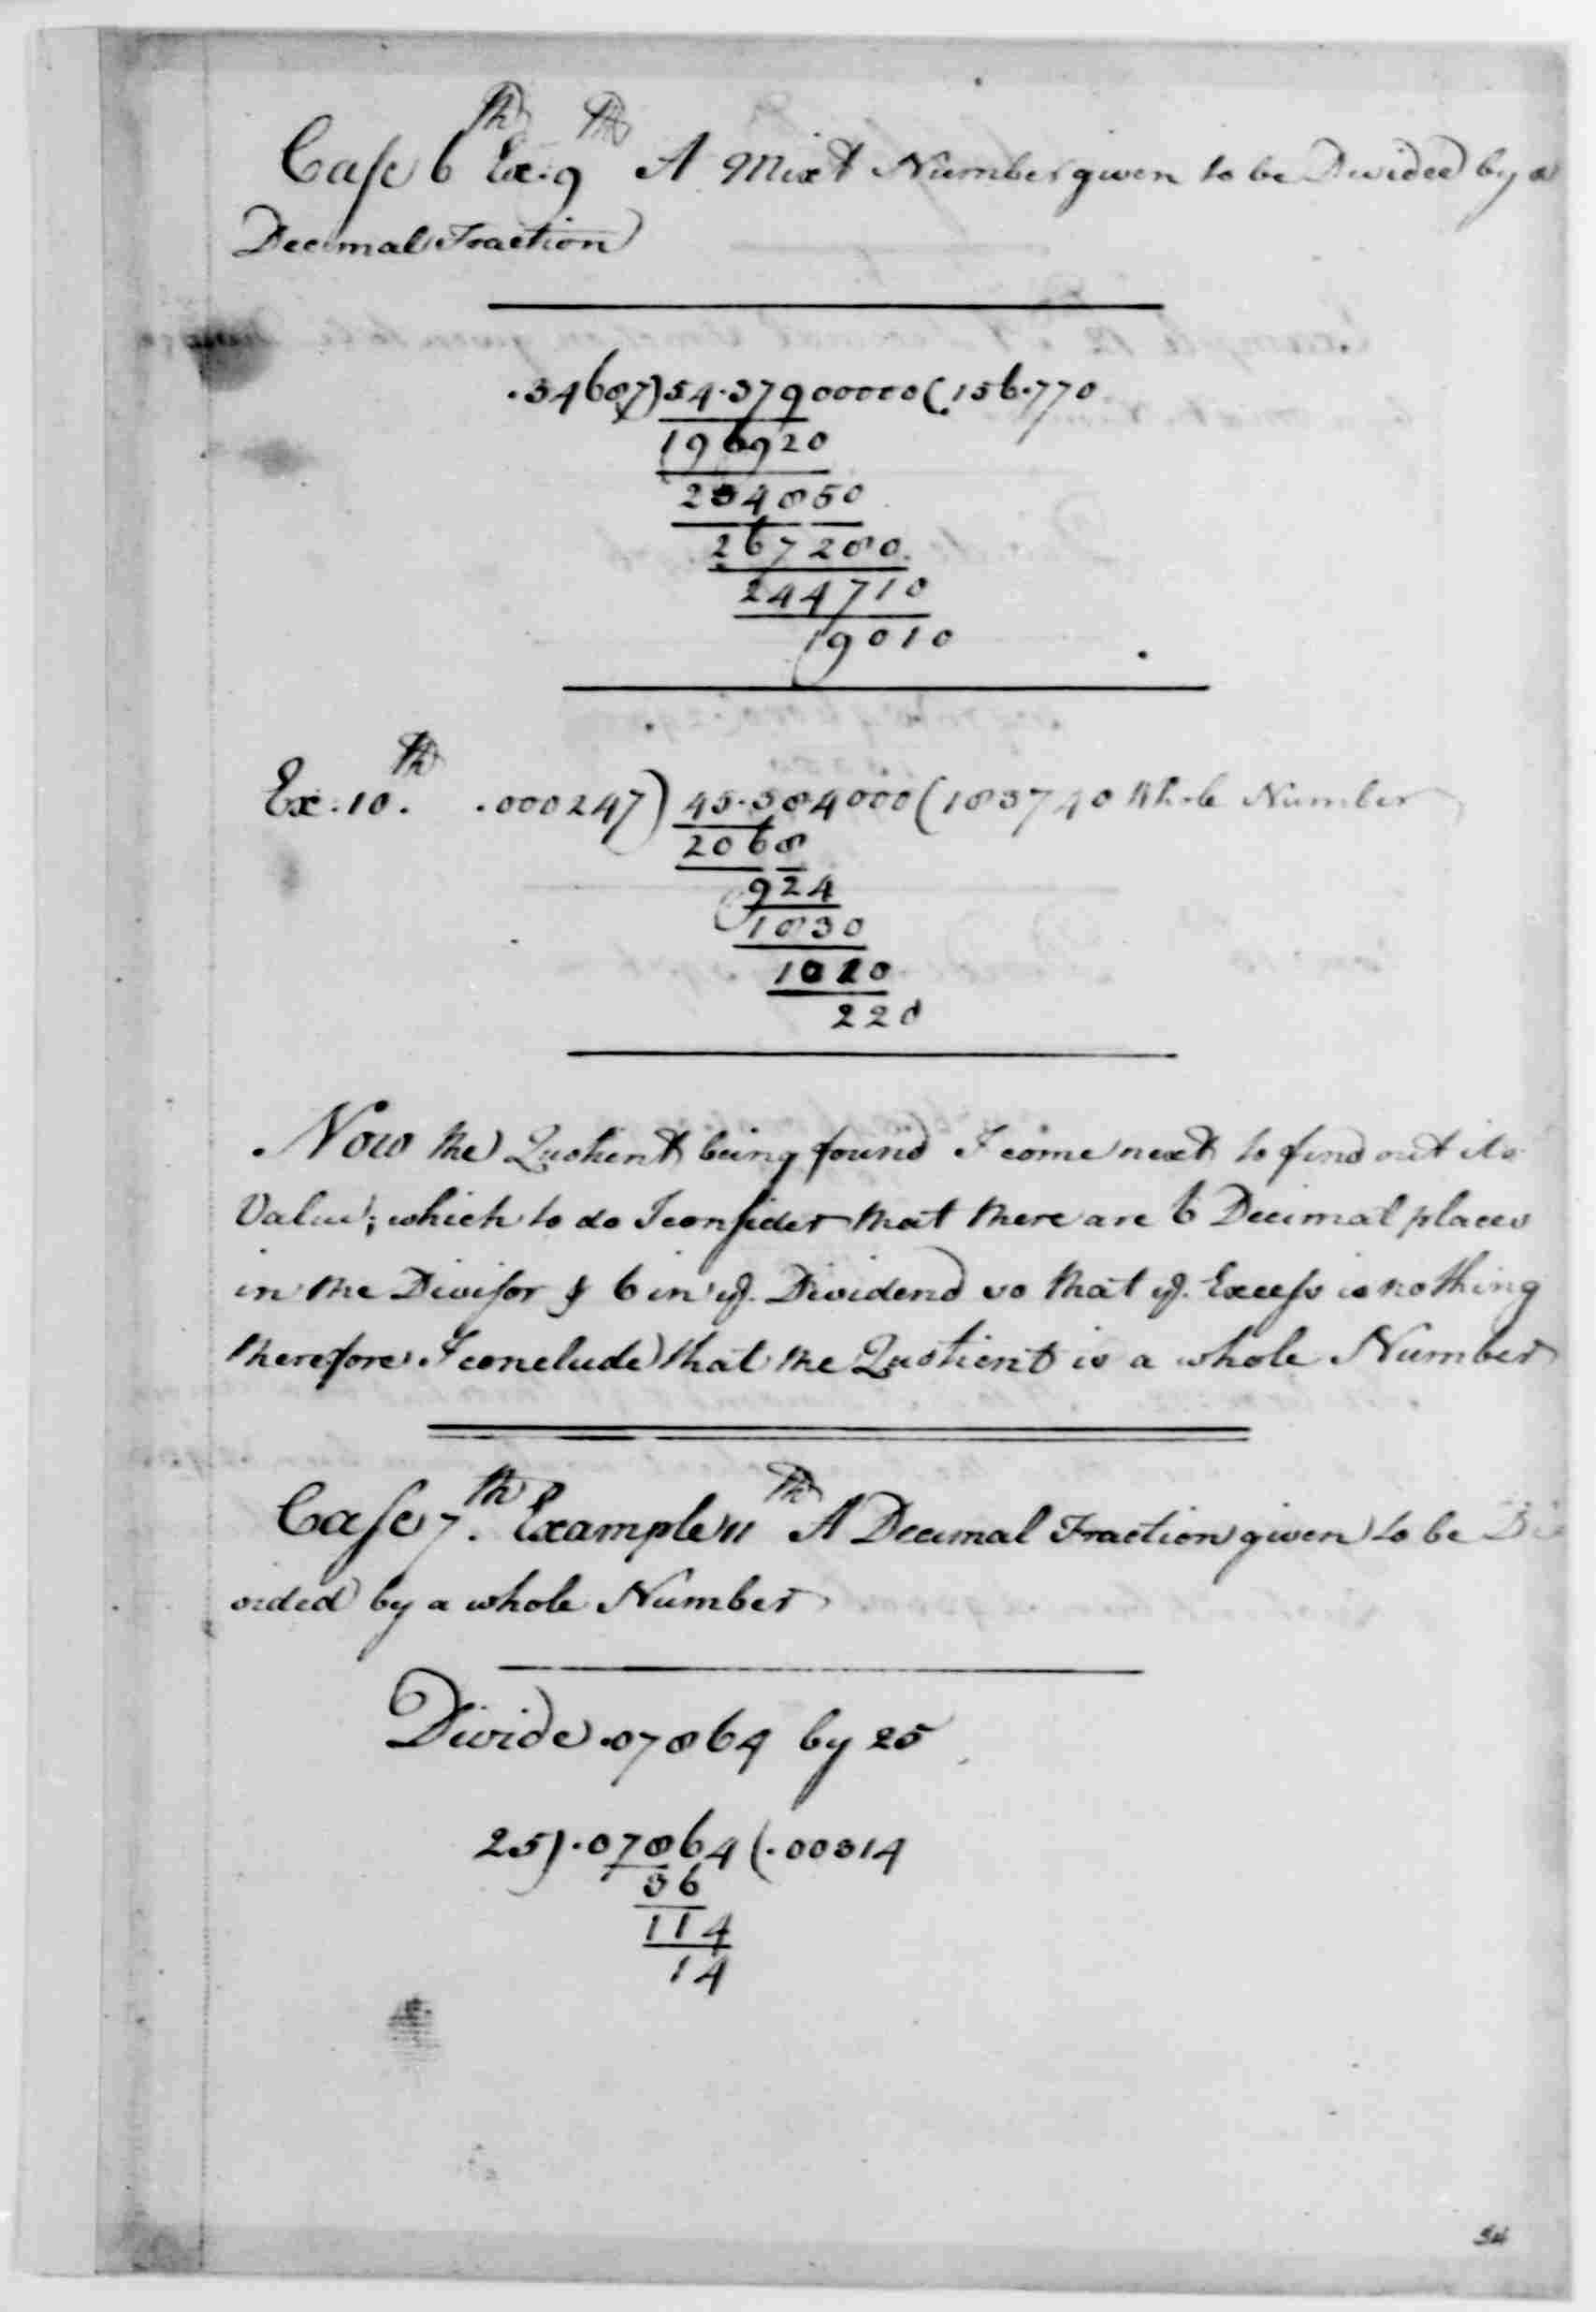 Case 6th Ex: 9th A Mixt Number given to be Divided by a
Decimal Fraction
.34687)54.37900000(156.770
196920
234850
267280
244710
19010
Ex: 10th. .000247)45.384000(183740 Whole Number
2068
924
1830
1010
220
Now the Quotient being found I come next to find out its
Value; which to do I consider that there are 6 Decimal places
in the Divisor & 6 in ye. Dividend so that ye. Excess is nothing
therefore I conclude that the Quotient is a whole Number
Case 7th. Example 11th A Decimal Fraction given to be Di
vided by a whole Number
Divide .07864 by 25
25).07864(.00314
36
114
14
54